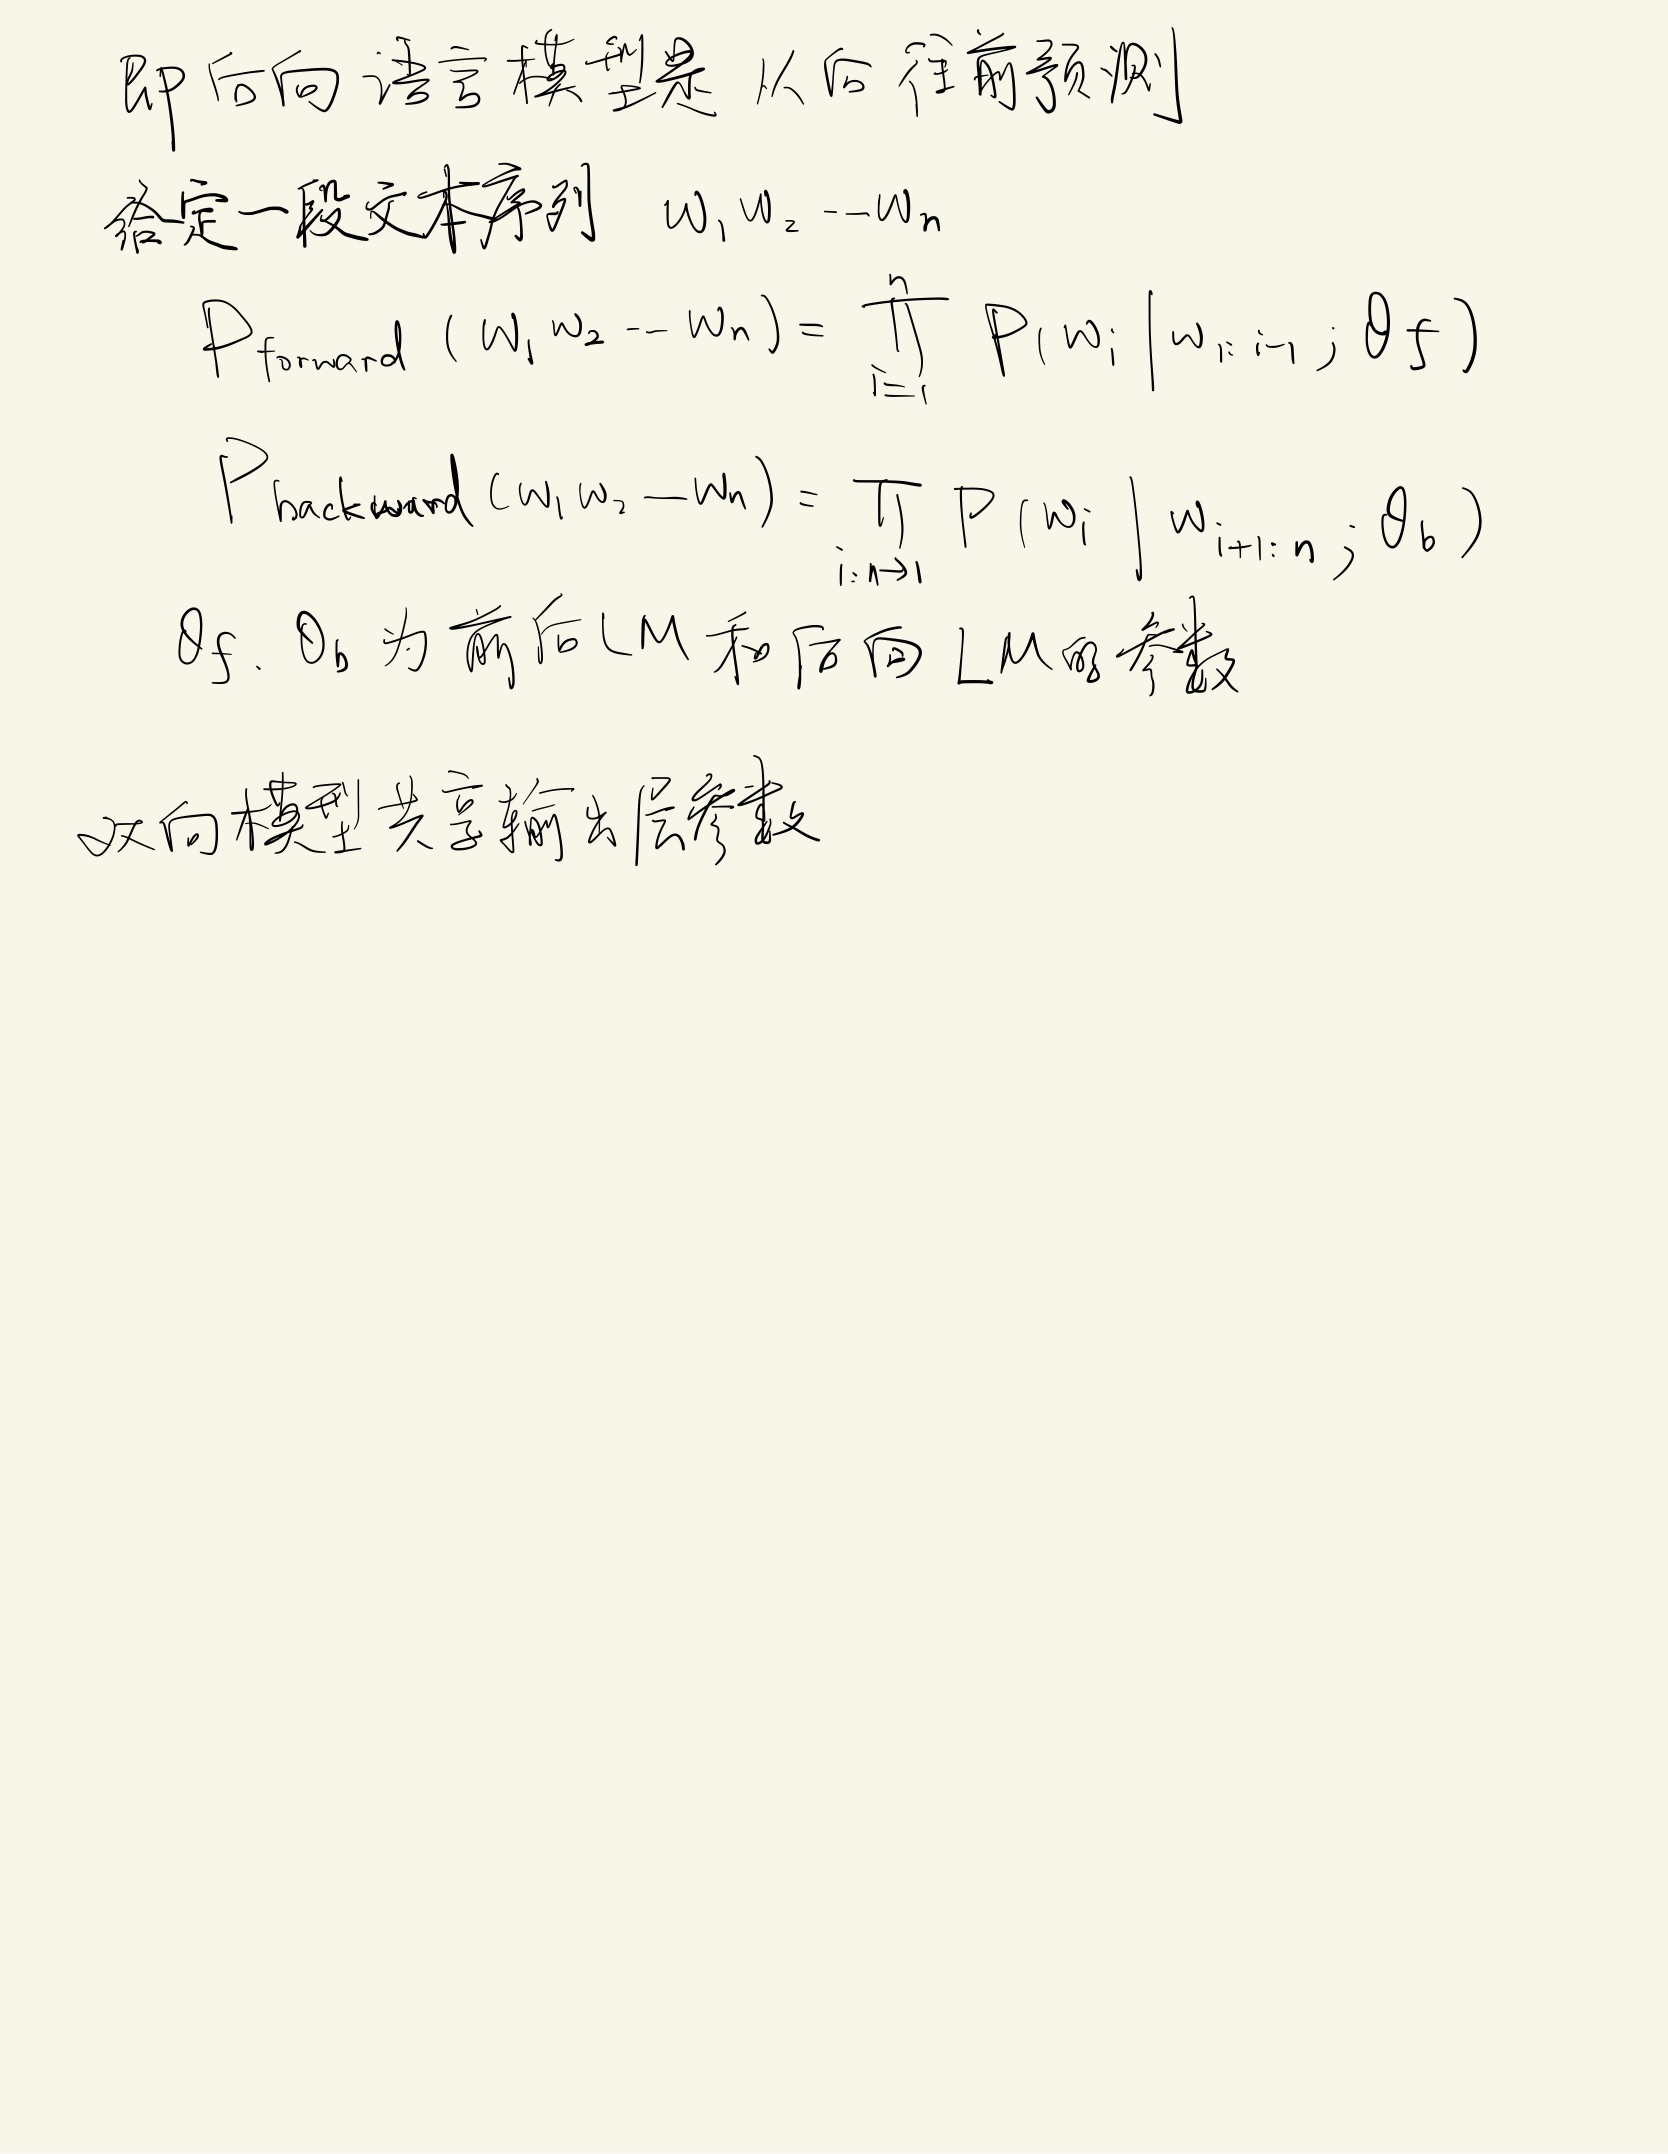 即后向语言模型是 从后往前预测
给定一段文本序列 w₁w₂--wₙ
P_forward (w₁w₂--wₙ) = ∏_{i=1}^{n} P(w_i | w_{1:i-1}; θ_f)
P_backward (w₁w₂--wₙ) = ∏_{i:n→1} P(w_i | w_{i+1:n}; θ_b)
θ_f、θ_b 为前后LM和后向LM的参数
双向模型共享输出层参数